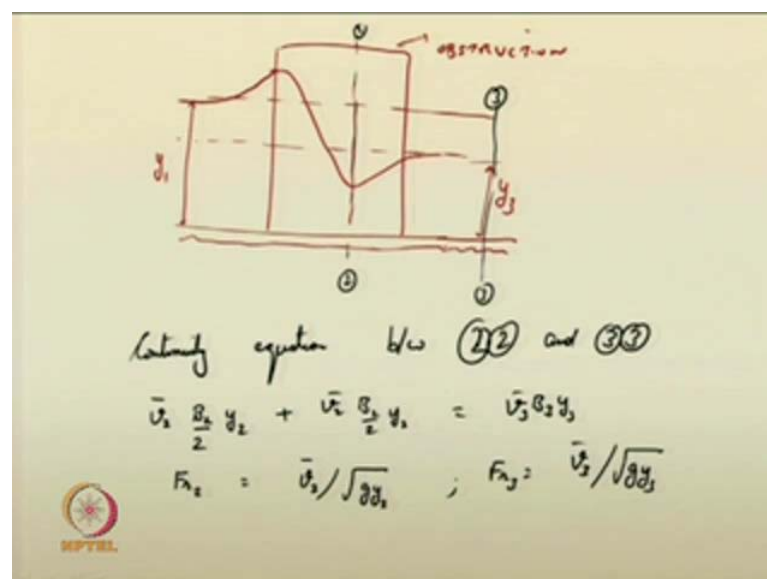 ②
OBSTRUCTION
③
y₁
y₃
②
③
Continuity equation b/w ②② and ③③
v̄₂ B₂/2 y₂ + v̄₂ B₂/2 y₂ = v̄₃ B₃ y₃
Fr₂ = v̄₂/√gy₂ ; Fr₃ = v̄₃/√gy₃
NPTEL